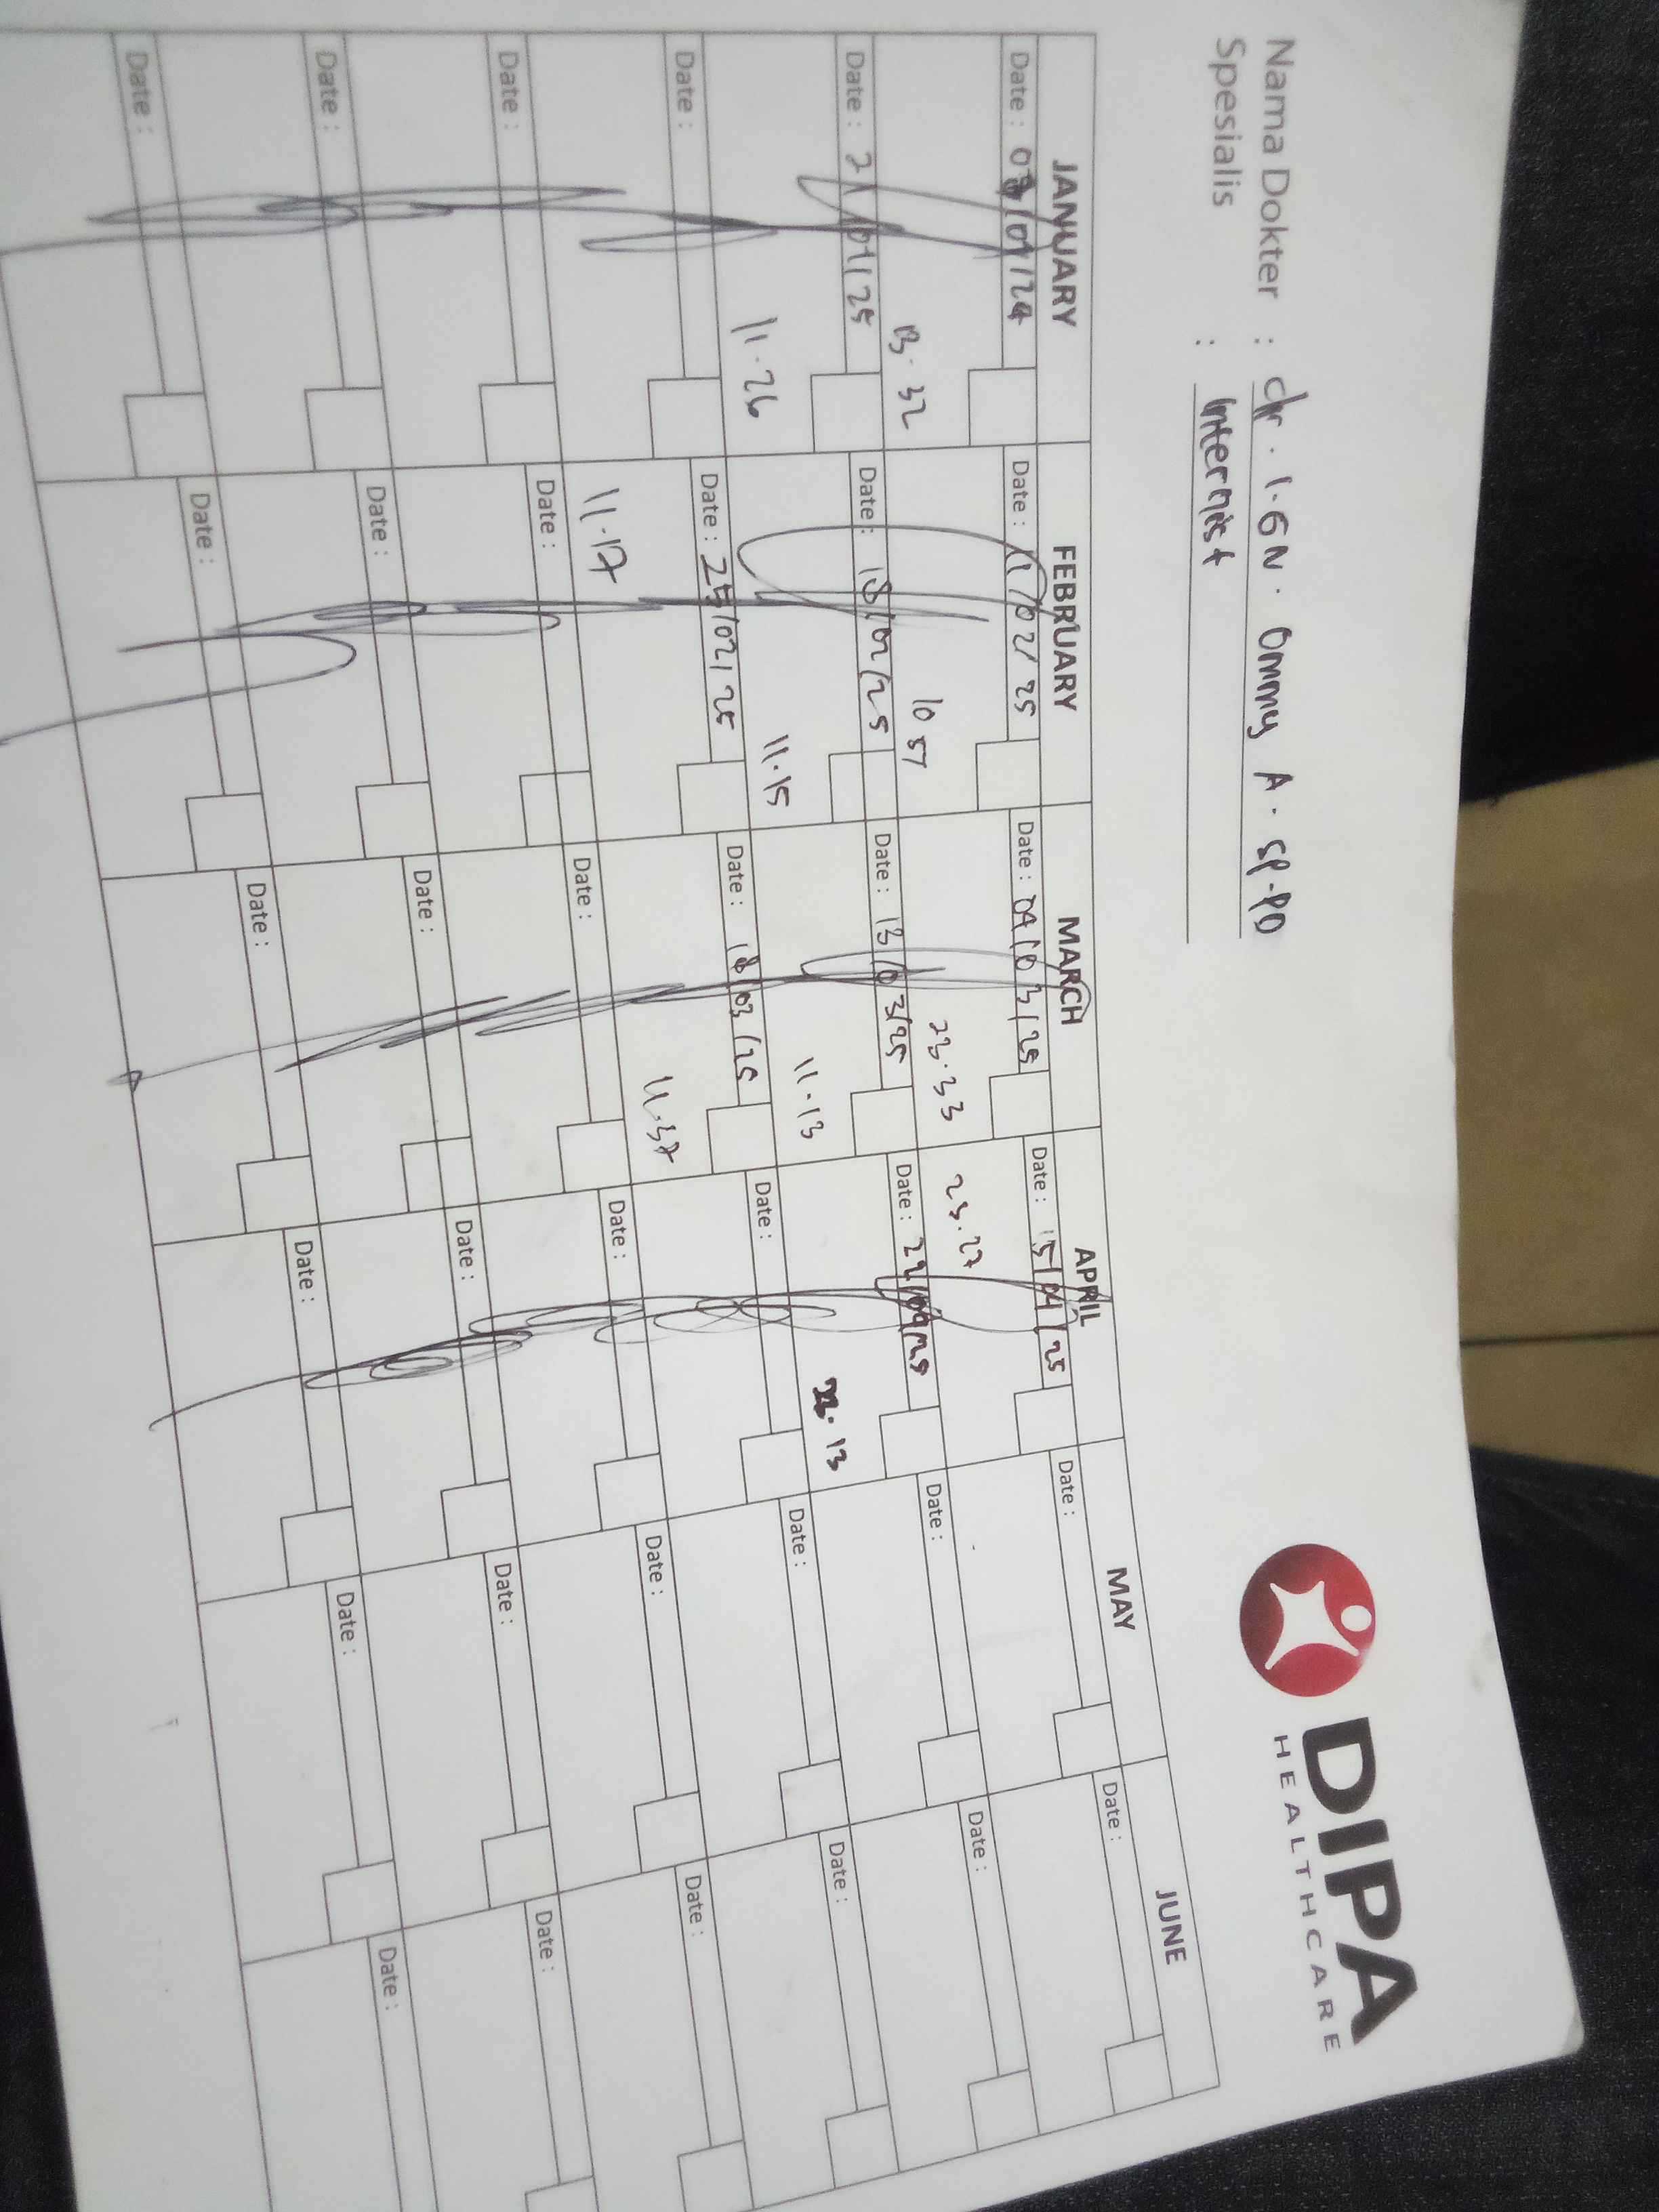 DIPA
HEALTHCARE
Nama Dokter : dr. I.GN. Ommy A. SP.PD
Spesialis : Internist
JANUARY FEBRUARY MARCH APRIL MAY JUNE
Date : /01/24 Date : 11/02/25 Date : 04/03/25 Date : 15/04/25 Date : Date :
13.32 10 57 23.33 23.27
Date : 21/01/25 Date : 18/02/25 Date : 13/03/25 Date : 22/04/25 Date : Date :
11.26 11.15 11.13 .13
Date : Date : 25/02/25 Date : 18/03/25 Date : Date : Date :
11.17 11.37
Date : Date : Date : Date : Date : Date :
Date : Date : Date : Date : Date : Date :
Date : Date : Date : Date : Date : Date :